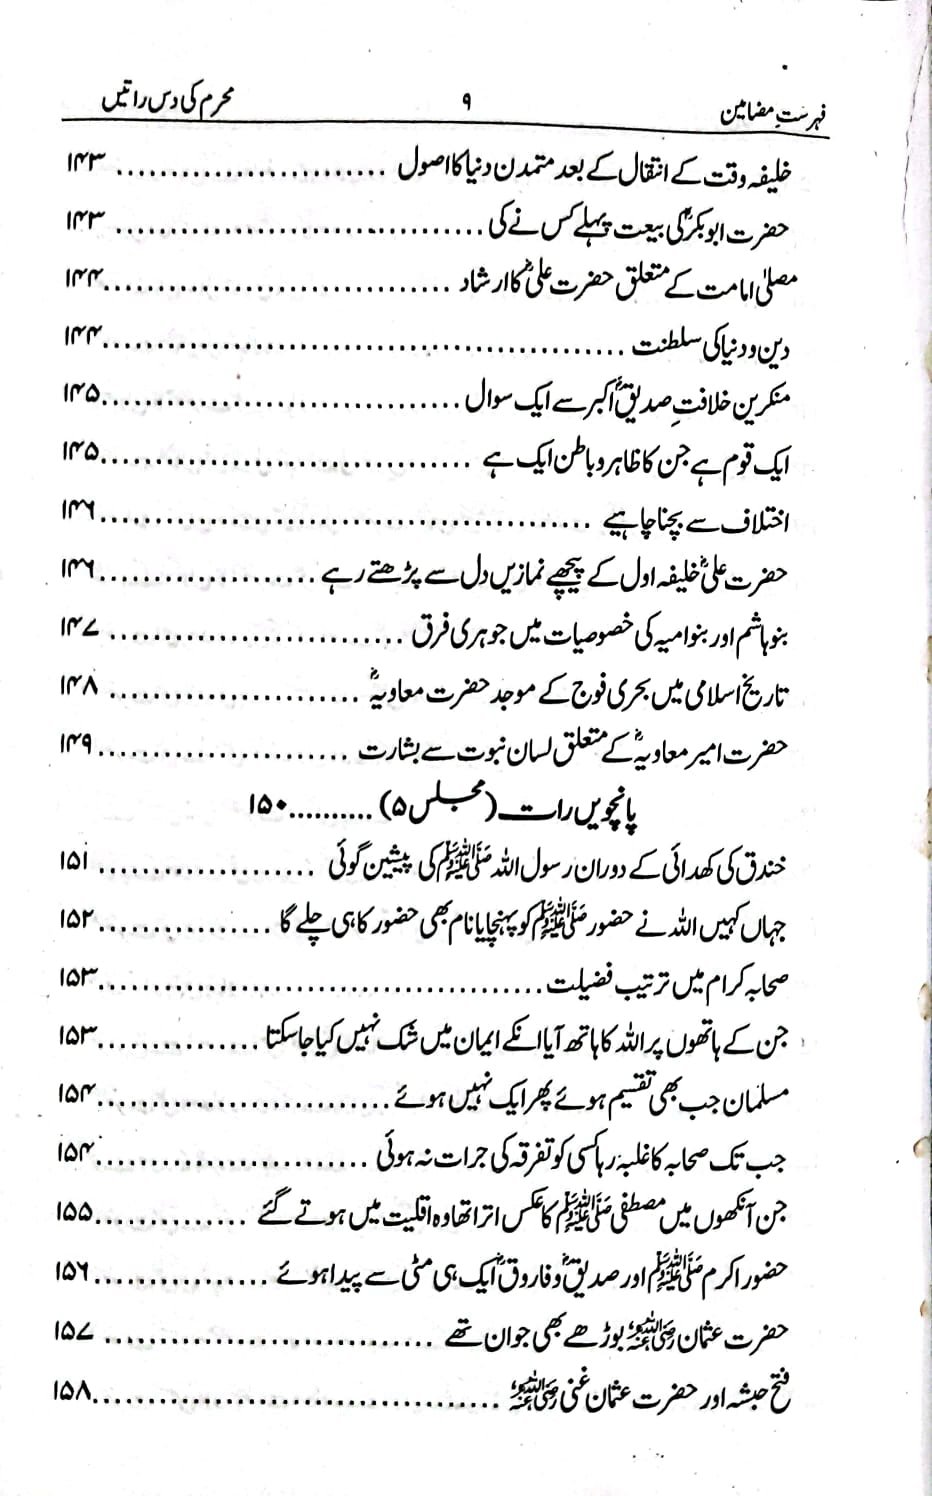 فہرستِ مضامین ۹ محرم کی دس راتیں
خلیفہ وقت کے انتقال کے بعد متمدن دنیا کا اصول ........................ ۱۴۳
حضرت ابوبکرؓ کی بیعت پہلے کس نے کی ................................ ۱۴۳
مصلیٰ امامت کے متعلق حضرت علیؓ کا ارشاد ............................ ۱۴۴
دین و دنیا کی سلطنت ............................................ ۱۴۴
منکرین خلافتِ صدیقؓ اکبر سے ایک سوال .............................. ۱۴۵
ایک قوم ہے جن کا ظاہر و باطن ایک ہے .............................. ۱۴۵
اختلاف سے بچنا چاہیے .......................................... ۱۴۶
حضرت علیؓ خلیفہ اول کے پیچھے نمازیں دل سے پڑھتے رہے .................. ۱۴۶
بنو ہاشم اور بنو امیہ کی خصوصیات میں جوہری فرق ........................ ۱۴۷
تاریخ اسلامی میں بحری فوج کے موجد حضرت معاویہؓ ...................... ۱۴۸
حضرت امیر معاویہؓ کے متعلق لسان نبوت سے بشارت ...................... ۱۴۹
پانچویں رات (مجلس ۵) .......... ۱۵۰
خندق کی کھدائی کے دوران رسول اللہ ﷺ کی پیشین گوئی .................. ۱۵۱
جہاں کہیں اللہ نے حضور ﷺ کو پہنچایا نام بھی حضور کا ہی چلے گا ................ ۱۵۲
صحابہ کرام میں ترتیب فضیلت .................................... ۱۵۳
جن کے ہاتھوں پر اللہ کا ہاتھ آیا انکے ایمان میں شک نہیں کیا جا سکتا .............. ۱۵۳
مسلمان جب بھی تقسیم ہوئے پھر ایک نہیں ہوئے .......................... ۱۵۴
جب تک صحابہ کا غلبہ رہا کسی کو تفرقہ کی جرات نہ ہوئی ...................... ۱۵۴
جن آنکھوں میں مصطفی ﷺ کا عکس اترا تھا وہ اقلیت میں ہوتے گئے .............. ۱۵۵
حضور اکرم ﷺ اور صدیقؓ و فاروقؓ ایک ہی مٹی سے پیدا ہوئے ................ ۱۵۶
حضرت عثمان رضی اللہ عنہ بوڑھے بھی جوان تھے ........................ ۱۵۷
فتح حبشہ اور حضرت عثمان غنی رضی اللہ عنہ .............................. ۱۵۸